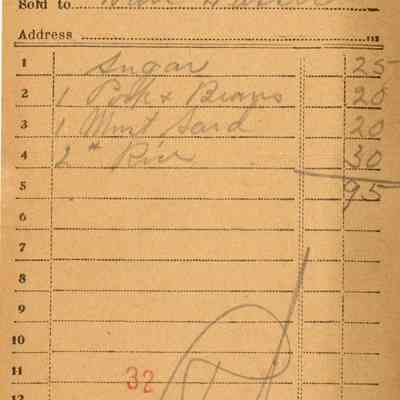 Sold to
Address
1 Sugar 25
2 1 Pork & Beans 20
3 1 Must Sard 20
4 2 # Rice 30
5 95
6
7
8
9
10
11 32
12